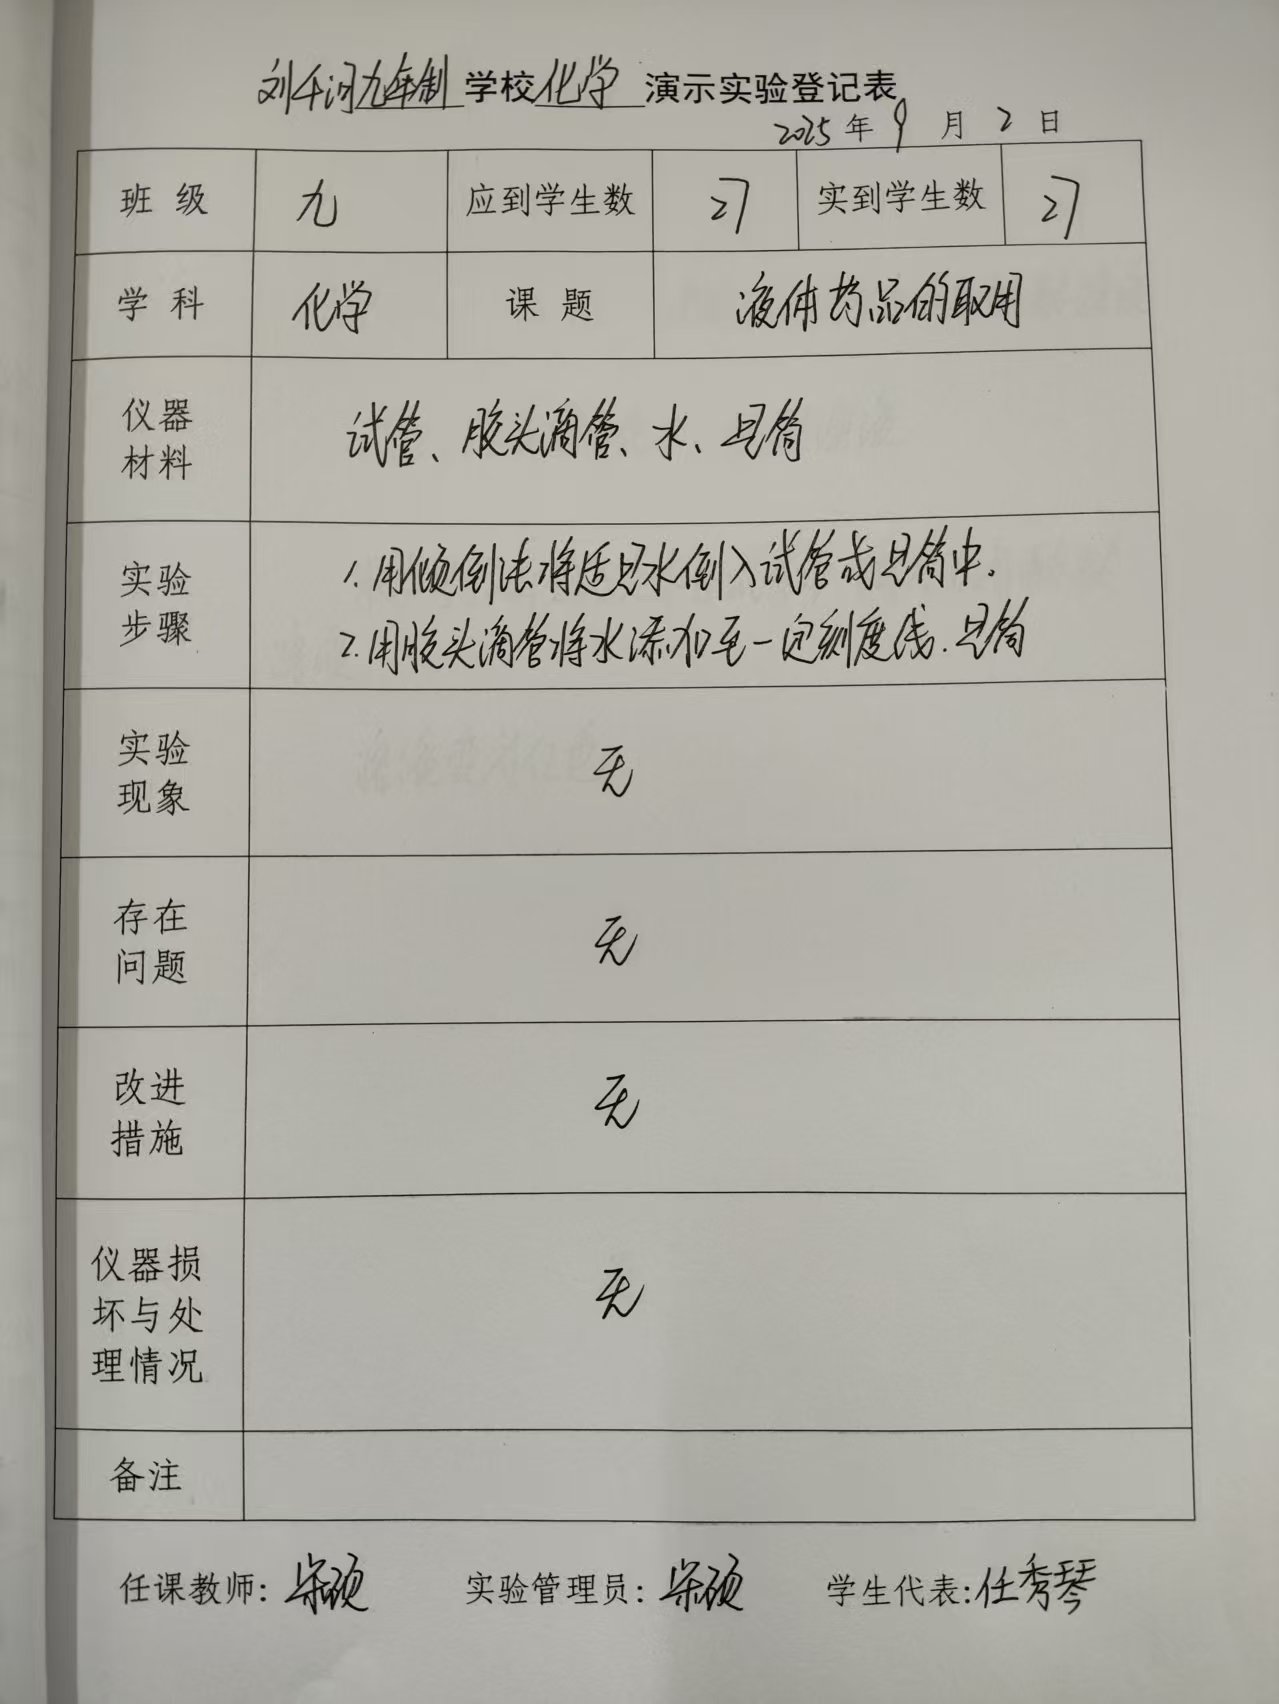 刘千河九年制学校化学演示实验登记表
2025年9月2日
班级 九 应到学生数 27 实到学生数 27
学科 化学 课题 液体药品的取用
仪器材料 试管、胶头滴管、水、量筒
实验步骤 1.用倾倒法将适量水倒入试管或量筒中.
2.用胶头滴管将水添加至一定刻度线.量筒
实验现象 无
存在问题 无
改进措施 无
仪器损坏与处理情况 无
备注
任课教师: 实验管理员: 学生代表:任秀琴